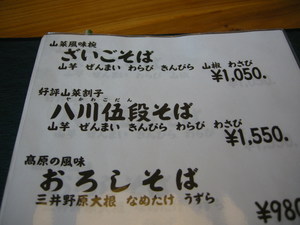 山菜風味椀
ざいごそば
山芋 ぜんまい わらび きんぴら 山椒 わさび
¥1,050.
好評山菜割子
やかわごだん
八川伍段そば
山芋 ぜんまい きんぴら わらび わさび
¥1,550.
高原の風味
おろしそば
三井野原大根 なめたけ うずら
¥980